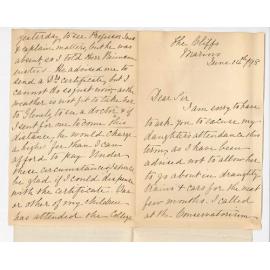 The Cliffs
Marino
June 14th 98
Dear Sir
I am sorry to have
to ask you to excuse my
daughter's attendance this
term as I have been
advised not to allow her
to go about in draughty
trains & cars for the next
few months. I called
at the Conservatorium
yesterday to see Professor
& explain matters, but he was
absent so I told Herr
He advised me to
send a Drs certificate, but I
cannot do so just now as the
weather is not fit to take her
to to see a doctor & if
I sent for one to come this
distance, he would charge
a higher fee than I can
afford to pay. Under
these circumstances I should
be glad if I could dispense
with the certificate. One
or other of my children
has attended the College